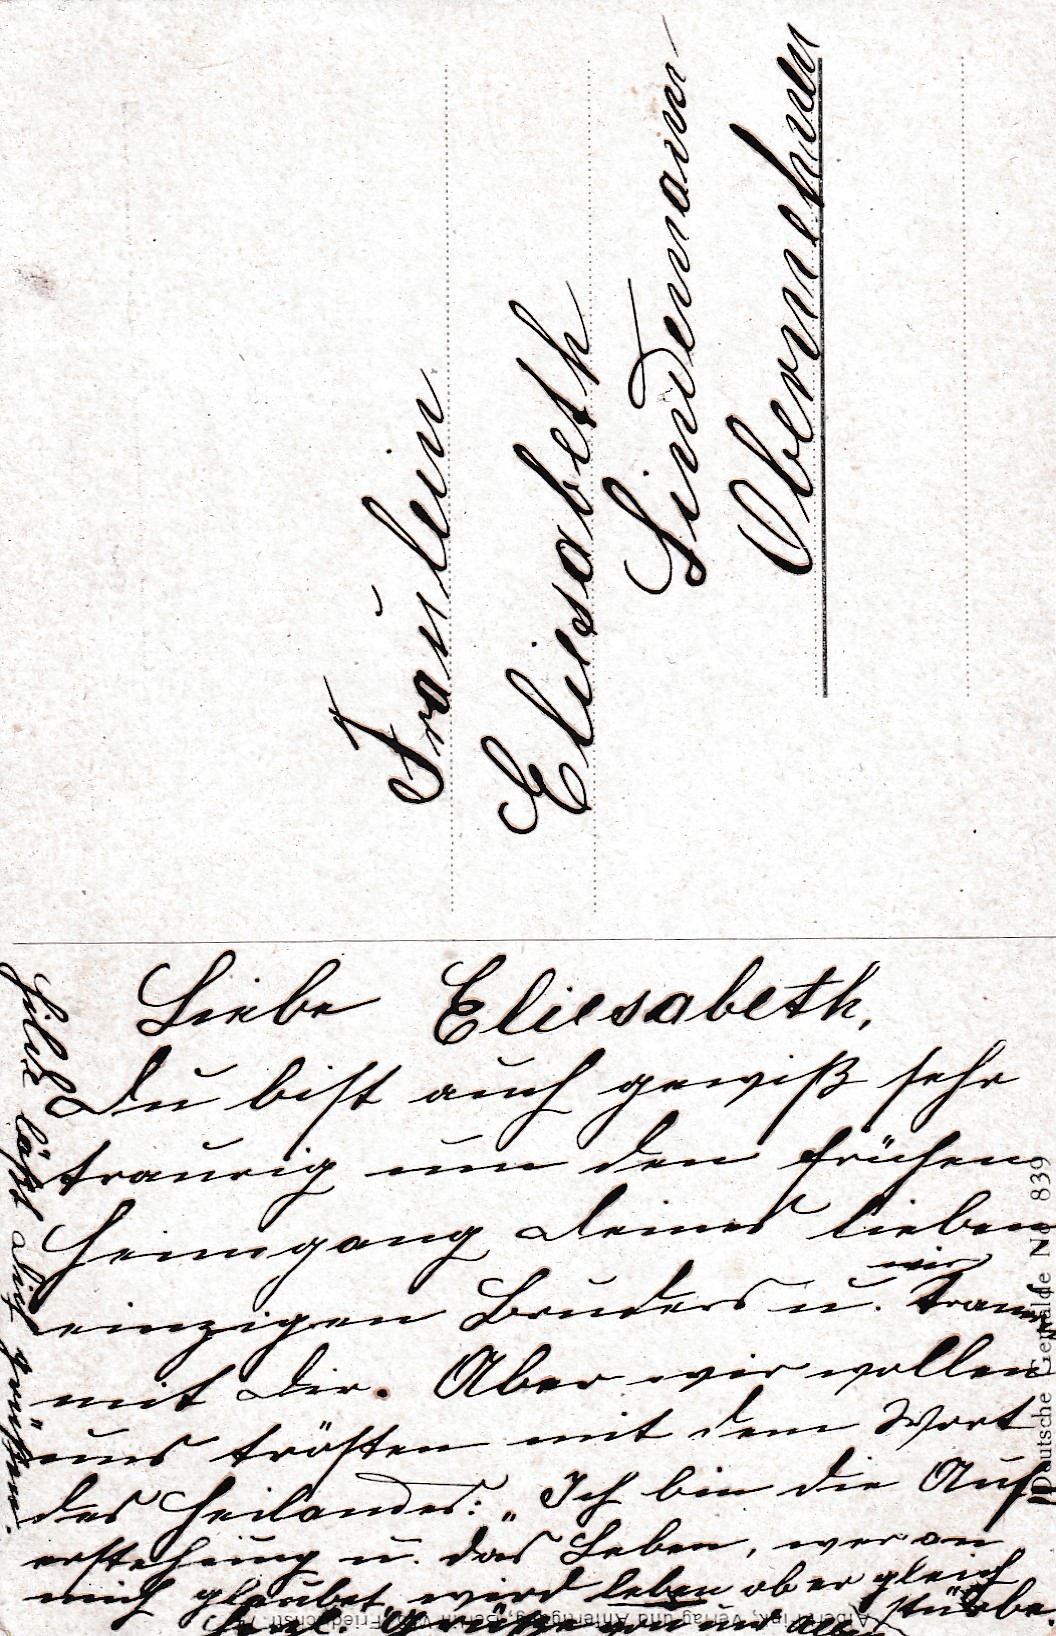 Fräulein
Eliesabeth
Lindemann
Obernnehmen
Liebe Eliesabeth,
Du bist auch gewiß sehr
traurig um den frühen
Heimgang deines lieben
einzigen Bruders u. wir trauern
mit dir. Aber wir wollen
uns trösten mit dem Wort
des Heilandes: „Ich bin die Auf-
erstehung u. das Leben, wer an
mich glaubet, wird leben ob er gleich
stürbe.
Herzl. Grüße von uns allen
läßt dich grüßen.
Deutsche Gemälde No 839
Albert Fink, Verlag und Anfertigung, Berlin Friedrichstr.